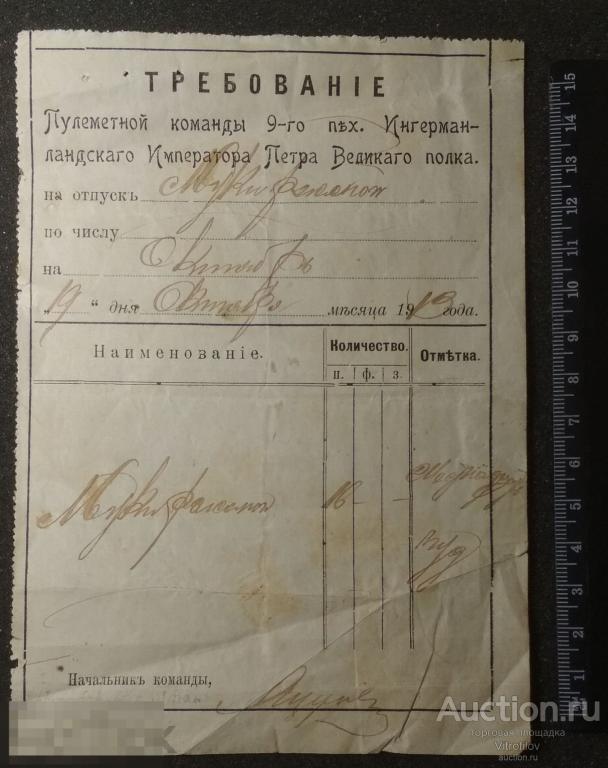 ТРЕБОВАНІЕ
Пулеметной команды 9-го пѣх. Ингерман-
ландскаго Императора Петра Великаго полка.
на отпускъ Муки ржаной
по числу
на Октябрь
„19“ дня Октября мѣсяца 1913 года.
Наименованіе.
Количество.
Отмѣтка.
п. ф. з.
Муки ржаной 16 - -
Начальникъ команды,
15
14
13
12
11
10
9
8
7
6
5
4
3
2
1
Auction.ru
торговая площадка
Vitrofilov
auction.ru